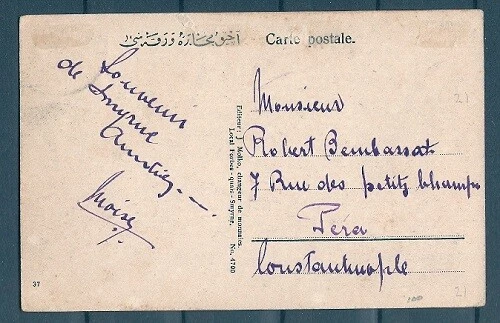 آچق مخابره ورقه سی
Carte postale.
Souvenir
de Smyrne
Amitiés
Moïse
Editeur: J. Molho, changeur de monnaies.
Local Forbes - quais - Smyrne. No. 4700
Monsieur
Robert Bembassat
7 Rue des petits champs
Péra
Constantinople
37
21
100
21